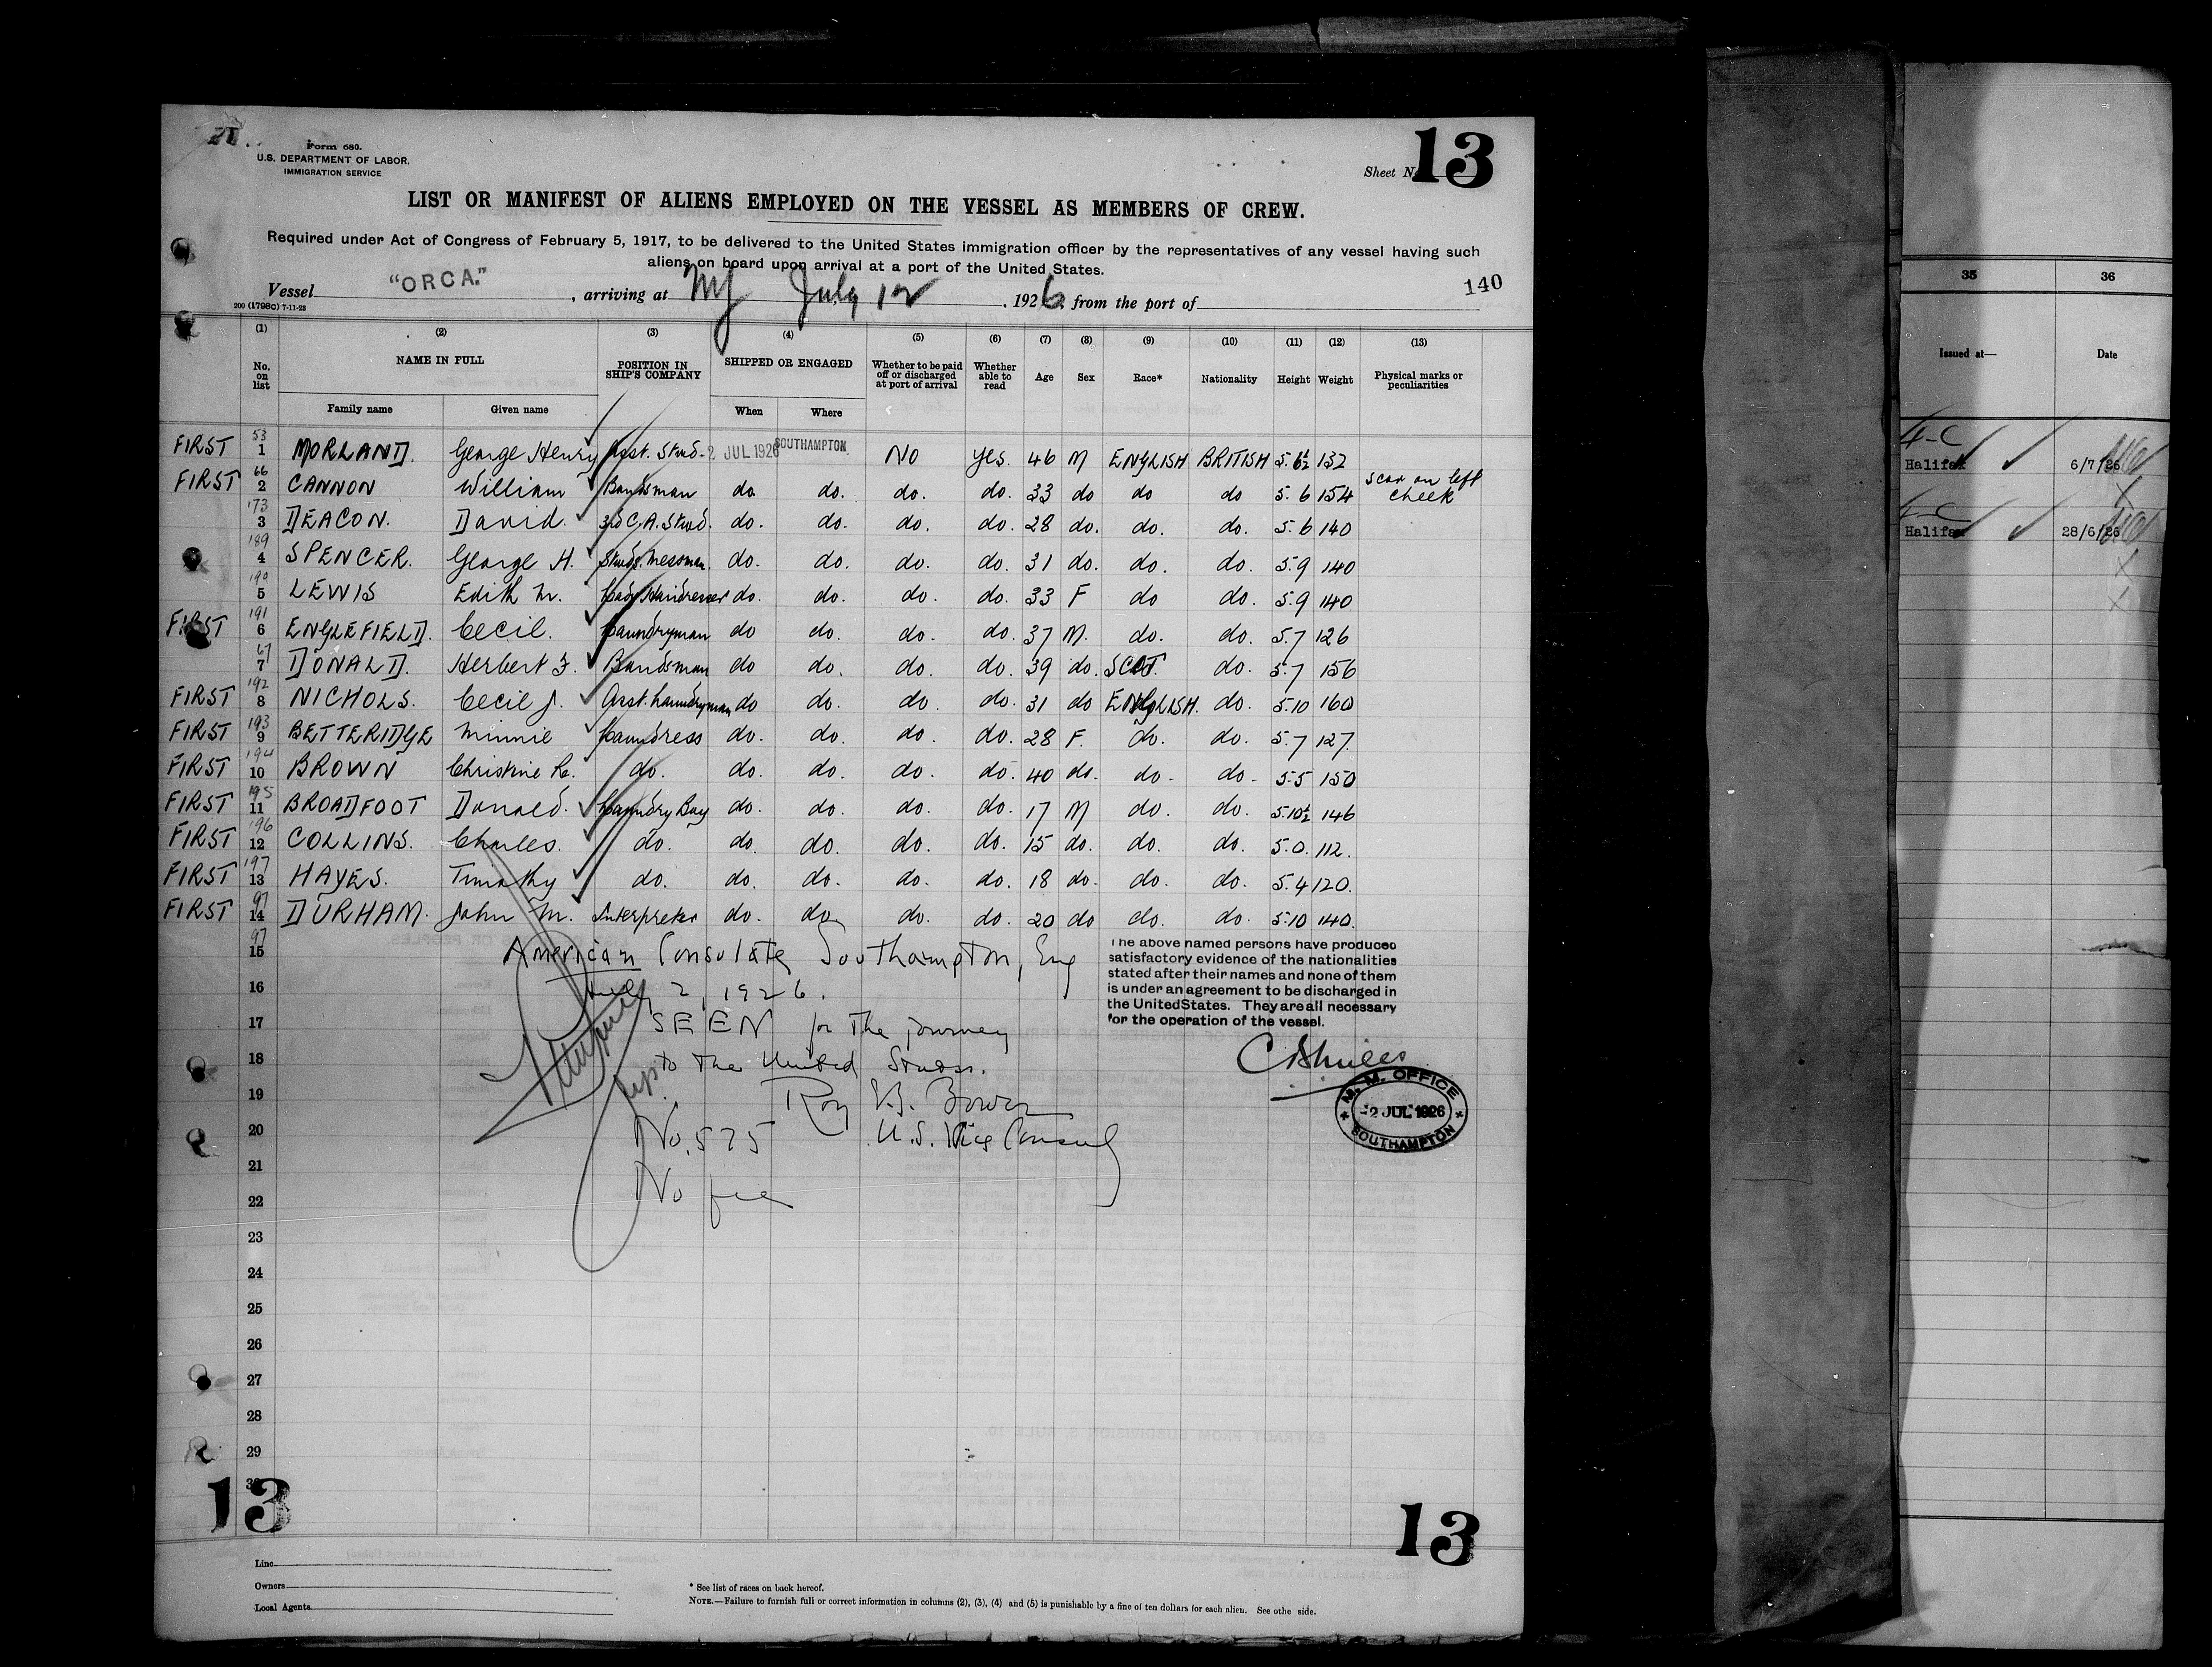 Form 680.
U.S. DEPARTMENT OF LABOR.
IMMIGRATION SERVICE
Sheet No. 13
LIST OR MANIFEST OF ALIENS EMPLOYED ON THE VESSEL AS MEMBERS OF CREW.
Required under Act of Congress of February 5, 1917, to be delivered to the United States immigration officer by the representatives of any vessel having such
aliens on board upon arrival at a port of the United States.
140
Vessel "ORCA." , arriving at NY July 12 , 1926 from the port of
200 (1798c) 7-11-23
(1) (2) (3) (4) (5) (6) (7) (8) (9) (10) (11) (12) (13)
No. on list NAME IN FULL POSITION IN SHIP'S COMPANY SHIPPED OR ENGAGED Whether to be paid off or discharged at port of arrival Whether able to read Age Sex Race* Nationality Height Weight Physical marks or peculiarities
Family name Given name When Where
FIRST 53 1 MORLAND. George Henry Asst. Stwd. 2 JUL 1926 SOUTHAMPTON NO Yes. 46 M ENGLISH BRITISH 5.6½ 132
FIRST 66 2 CANNON William Bandsman do do. do. do. 33 do do do 5.6 154 Scar on left cheek
173 3 DEACON. David. 3rd C.A. Stwd. do. do. do. do. 28 do. do. do. 5.6 140
189 4 SPENCER. George H. Stwds. Messman. do. do. do. do. 31 do. do. do. 5.9 140
190 5 LEWIS Edith M. Lady Hairdresser do. do. do. do. 33 F do do. 5.9 140
FIRST 191 6 ENGLEFIELD. Cecil. Laundryman do do. do. do. 37 M. do. do. 5.7 126
67 7 DONALD. Herbert F. Bandsman do do. do. do. 39 do. SCOT. do. 5.7 156
FIRST 192 8 NICHOLS. Cecil J. Asst. Laundryman do do. do. do. 31 do ENGLISH. do. 5.10 160
FIRST 193 9 BETTERIDGE Minnie Laundress do. do. do. do. 28 F. do. do. 5.7 127.
FIRST 194 10 BROWN Christine R. do. do. do. do. do. 40 do. do. do. 5.5 150
FIRST 195 11 BROADFOOT Donald. Laundry Boy do. do. do. do. 17 M do. do. 5.10½ 146
FIRST 196 12 COLLINS. Charles. do. do. do. do. do. 15 do. do. do. 5.0. 112.
FIRST 197 13 HAYES. Timothy do. do. do. do. do. 18 do. do. do. 5.4 120.
FIRST 97 14 DURHAM. John M. Interpreter do. do. do. do. 20 do do. do. 5.10 140.
97 15
American Consulate, Southampton, Eng
July 2, 1926.
SEEN for the journey
to the United States.
Roy
U.S. Vice Consul
No. 575
No fee
The above named persons have produced
satisfactory evidence of the nationalities
stated after their names and none of them
is under an agreement to be discharged in
the United States. They are all necessary
for the operation of the vessel.
M. M. OFFICE
-2 JUL 1926
SOUTHAMPTON
16
17
18
19
20
21
22
23
24
25
26
27
28
29
30
13
13
Line
Owners
Local Agents
* See list of races on back hereof.
NOTE.—Failure to furnish full or correct information in columns (2), (3), (4) and (5) is punishable by a fine of ten dollars for each alien. See othe side.
35 36
Issued at— Date
4-C
Halifax 6/7/26
4-C
Halifax 28/6/26